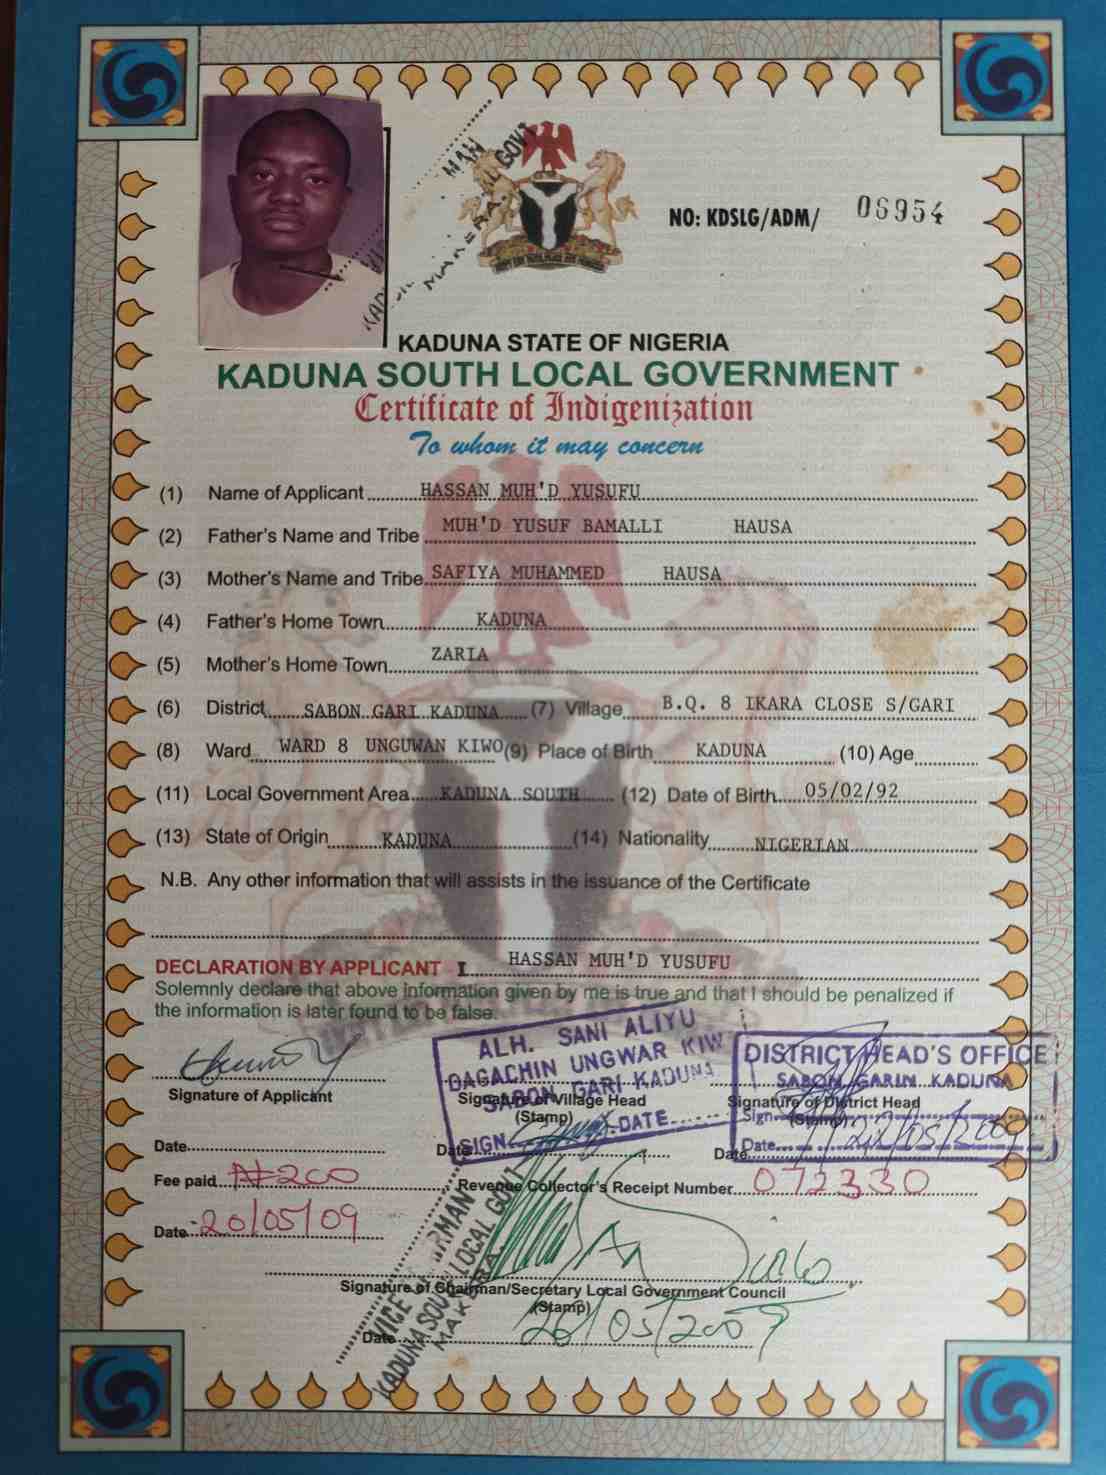 NO: KDSLG/ADM/ 06954
KADUNA STATE OF NIGERIA
KADUNA SOUTH LOCAL GOVERNMENT
Certificate of Indigenization
To whom it may concern
(1) Name of Applicant HASSAN MUH'D YUSUFU
(2) Father's Name and Tribe MUH'D YUSUF BAMALLI HAUSA
(3) Mother's Name and Tribe SAFIYA MUHAMMED HAUSA
(4) Father's Home Town KADUNA
(5) Mother's Home Town ZARIA
(6) District SABON GARI KADUNA (7) Village B.Q. 8 IKARA CLOSE S/GARI
(8) Ward WARD 8 UNGUWAN KIWO (9) Place of Birth KADUNA (10) Age
(11) Local Government Area KADUNA SOUTH (12) Date of Birth 05/02/92
(13) State of Origin KADUNA (14) Nationality NIGERIAN
N.B. Any other information that will assists in the issuance of the Certificate
DECLARATION BY APPLICANT I HASSAN MUH'D YUSUFU
Solemnly declare that above information given by me is true and that I should be penalized if
the information is later found to be false.
ALH. SANI ALIYU
DAGACHIN UNGWAR KIW
SABON GARI KADUNA
SIGN DATE
DISTRICT HEAD'S OFFICE
SABON GARIN KADUNA
Sign
Date 22/05/2009
Signature of Applicant
Signature of Village Head
(Stamp)
Signature of District Head
(Stamp)
Date
Date
Date
Fee paid ₦200
Revenue Collector's Receipt Number 072330
Date 20/05/09
Signature of Chairman/Secretary Local Government Council
(Stamp)
Date 20/05/2009
VICE CHAIRMAN
KADUNA SOUTH LOCAL GOVT
MAKERA